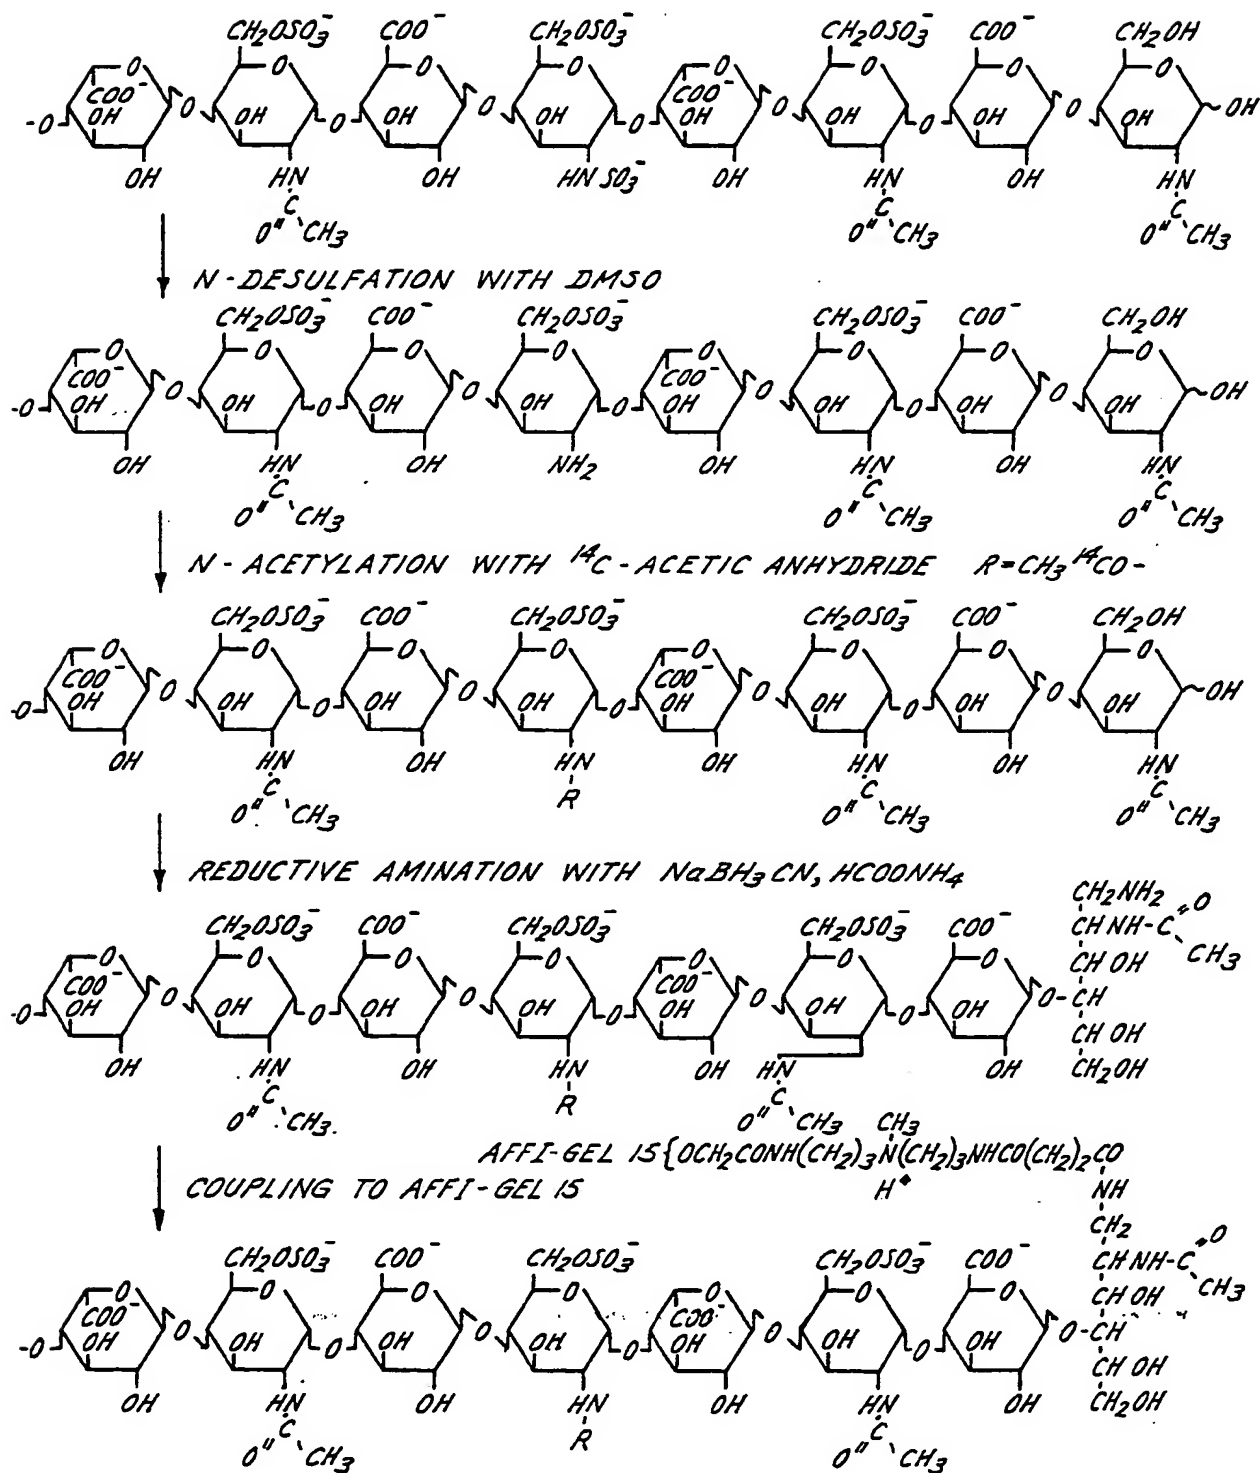 CH2OSO3⁻ COO⁻ CH2OSO3⁻ CH2OSO3⁻ COO⁻ CH2OH
O O O O O O O O
COO⁻ COO⁻
-O OH O OH O OH O OH O OH O OH O OH O OH OH
OH HN OH HNSO3⁻ OH HN OH HN
C C C
O" CH3 O" CH3 O" CH3
N-DESULFATION WITH DMSO
CH2OSO3⁻ COO⁻ CH2OSO3⁻ CH2OSO3⁻ COO⁻ CH2OH
O O O O O O O O
COO⁻ COO⁻
-O OH O OH O OH O OH O OH O OH O OH O OH OH
OH HN OH NH2 OH HN OH HN
C C C
O" CH3 O" CH3 O" CH3
N-ACETYLATION WITH 14C-ACETIC ANHYDRIDE R=CH3 14CO-
CH2OSO3⁻ COO⁻ CH2OSO3⁻ CH2OSO3⁻ COO⁻ CH2OH
O O O O O O O O
COO⁻ COO⁻
-O OH O OH O OH O OH O OH O OH O OH O OH OH
OH HN OH HN OH HN OH HN
C R C C
O" CH3 O" CH3 O" CH3
REDUCTIVE AMINATION WITH NaBH3CN, HCOONH4
CH2NH2
CH2OSO3⁻ COO⁻ CH2OSO3⁻ CH2OSO3⁻ COO⁻ CH NH-C O
O O O O O O O CH OH CH3
COO⁻ COO⁻
-O OH O OH O OH O OH O OH O OH O OH O-CH
CH OH
OH HN OH HN OH HN OH CH2OH
C R C
O" CH3 O" CH3
CH3
AFFI-GEL 15{OCH2CONH(CH2)3N(CH2)3NHCO(CH2)2CO
COUPLING TO AFFI-GEL 15 H+ NH
CH2
CH2OSO3⁻ COO⁻ CH2OSO3⁻ CH2OSO3⁻ COO⁻ CH NH-C O
O O O O O O O CH OH CH3
COO⁻ COO⁻
-O OH O OH O OH O OH O OH O OH O OH O-CH
CH OH
OH HN OH HN OH HN OH CH2OH
C R C
O" CH3 O" CH3